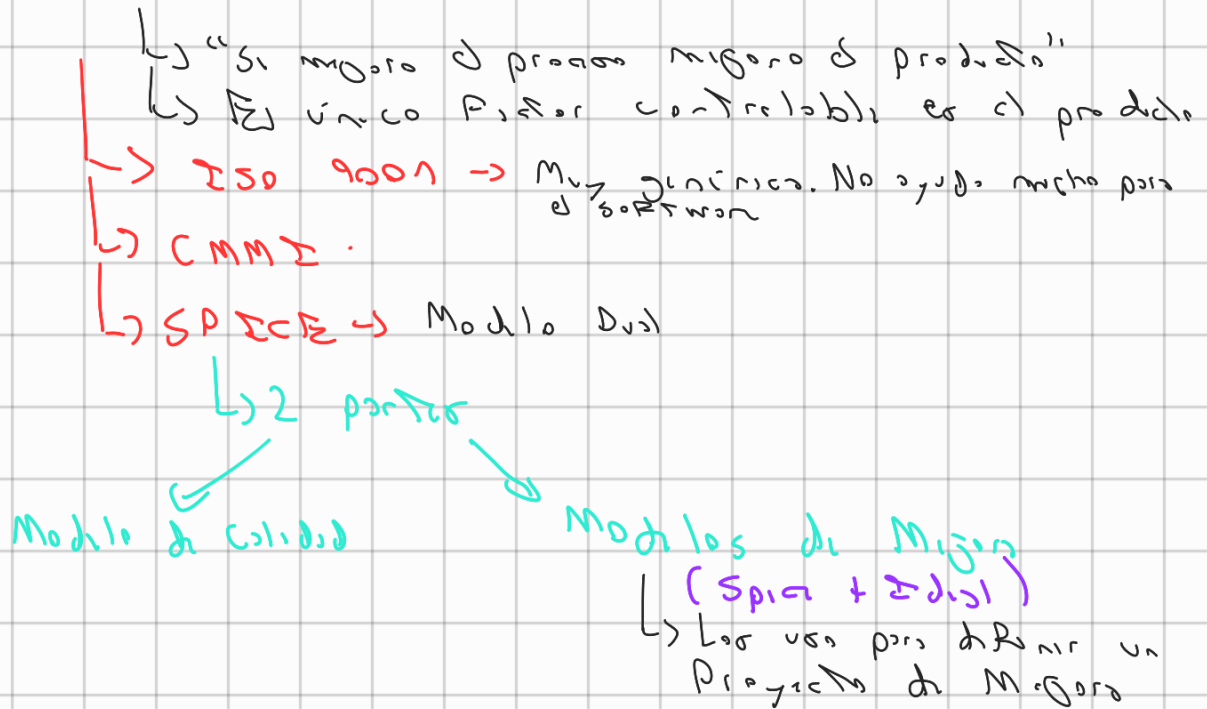 "Si mejoro el proceso mejoro el producto"
El único factor controlable es el producto
ISO 9001 → Muy genérico. No ayuda mucho para
el software
CMMI.
SPICE → Modelo Dual
2 partes
Modelo de Calidad
Modelos de Mejora
(Spice + Ideal)
Los uso para definir un
Proyecto de Mejora